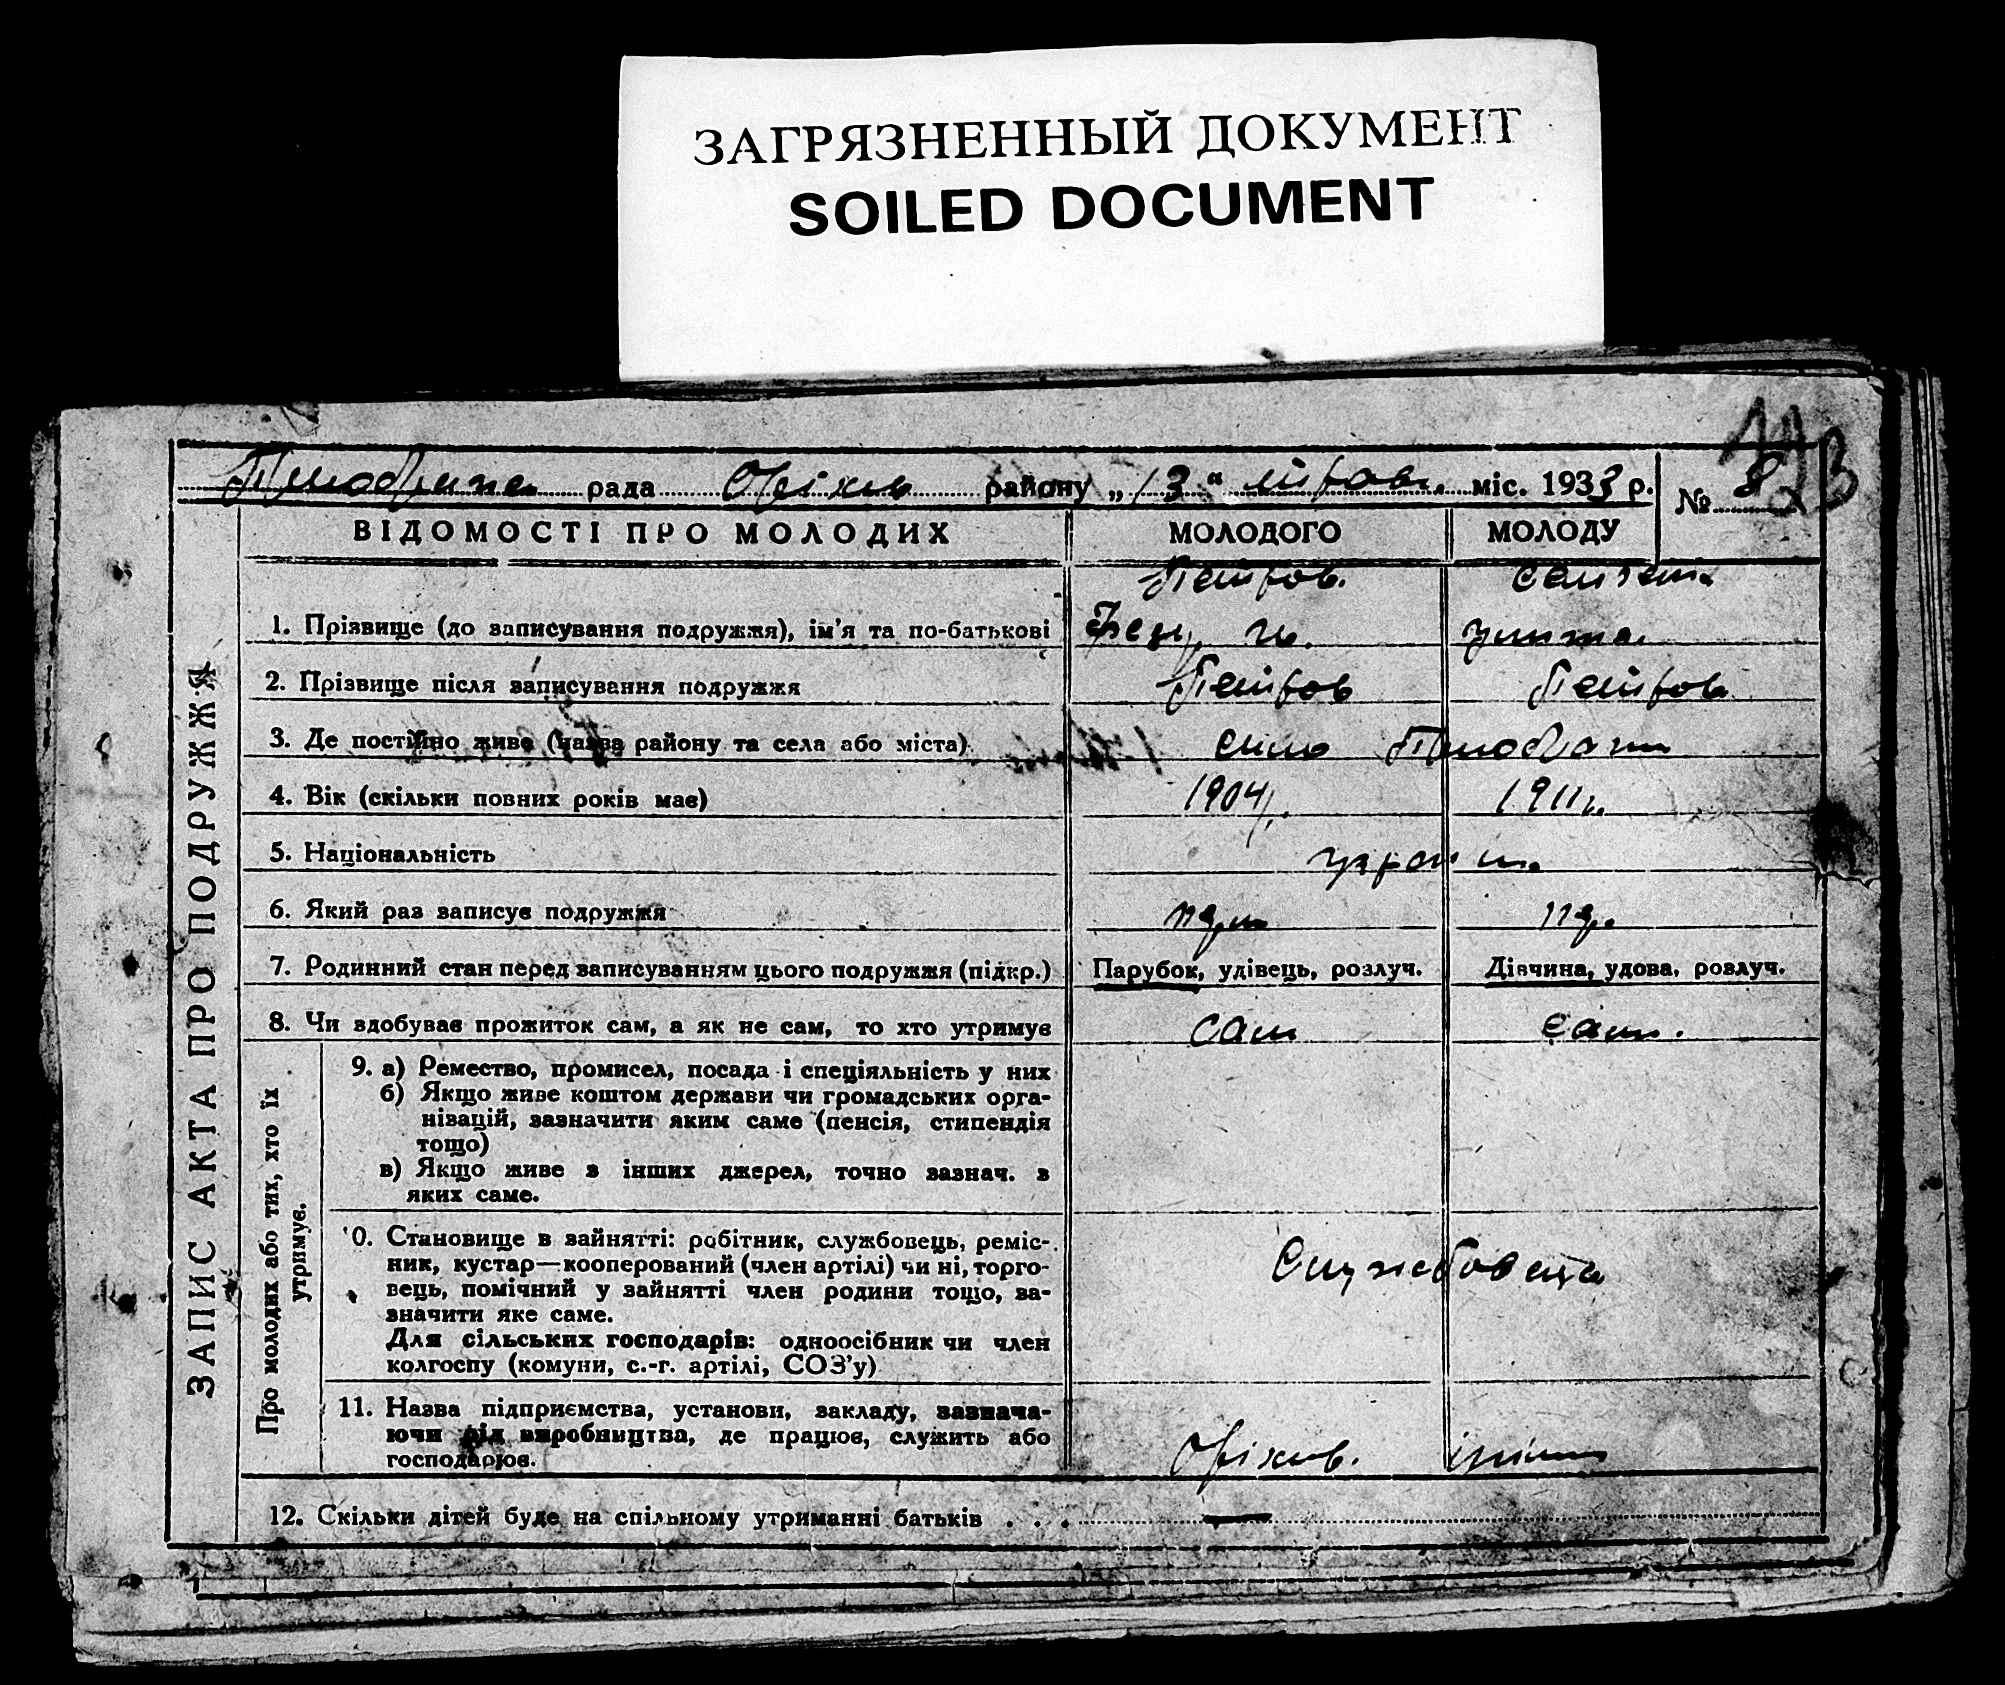 ЗАГРЯЗНЕННЫЙ ДОКУМЕНТ
SOILED DOCUMENT
рада Оріхів району „13“ міс. 1933 р. № 8
ВІДОМОСТІ ПРО МОЛОДИХ МОЛОДОГО МОЛОДУ
Петров.
1. Прізвище (до записування подружжя), ім'я та по-батькові
2. Прізвище після записування подружжя Петров Петров
3. Де постійно живе (назва району та села або міста) село
4. Вік (скільки повних років має) 1904 1911
5. Національність україн.
6. Який раз записує подружжя
7. Родинний стан перед записуванням цього подружжя (підкр.) Парубок, удівець, розлуч. Дівчина, удова, розлуч.
8. Чи здобуває прожиток сам, а як не сам, то хто утримує сам сам.
9. а) Ремество, промисел, посада і спеціяльність у них
б) Якщо живе коштом держави чи громадських орга-
нізацій, зазначити яким саме (пенсія, стипендія
тощо)
в) Якщо живе з інших джерел, точно зазнач. з
яких саме.
0. Становище в зайнятті: робітник, службовець, реміс-
ник, кустар—кооперований (член артілі) чи ні, торго-
вець, помічний у зайнятті член родини тощо, за-
значити яке саме.
Для сільських господарів: одноосібник чи член
колгоспу (комуни, с.-г. артілі, СОЗ'у)
Службовець
11. Назва підприємства, установи, закладу, зазнача-
ючи рід виробництва, де працює, служить або
господарює. Оріхів.
12. Скільки дітей буде на спільному утриманні батьків . . . —
ЗАПИС АКТА ПРО ПОДРУЖЖЯ
Про молодих або тих, хто їх
утримує.